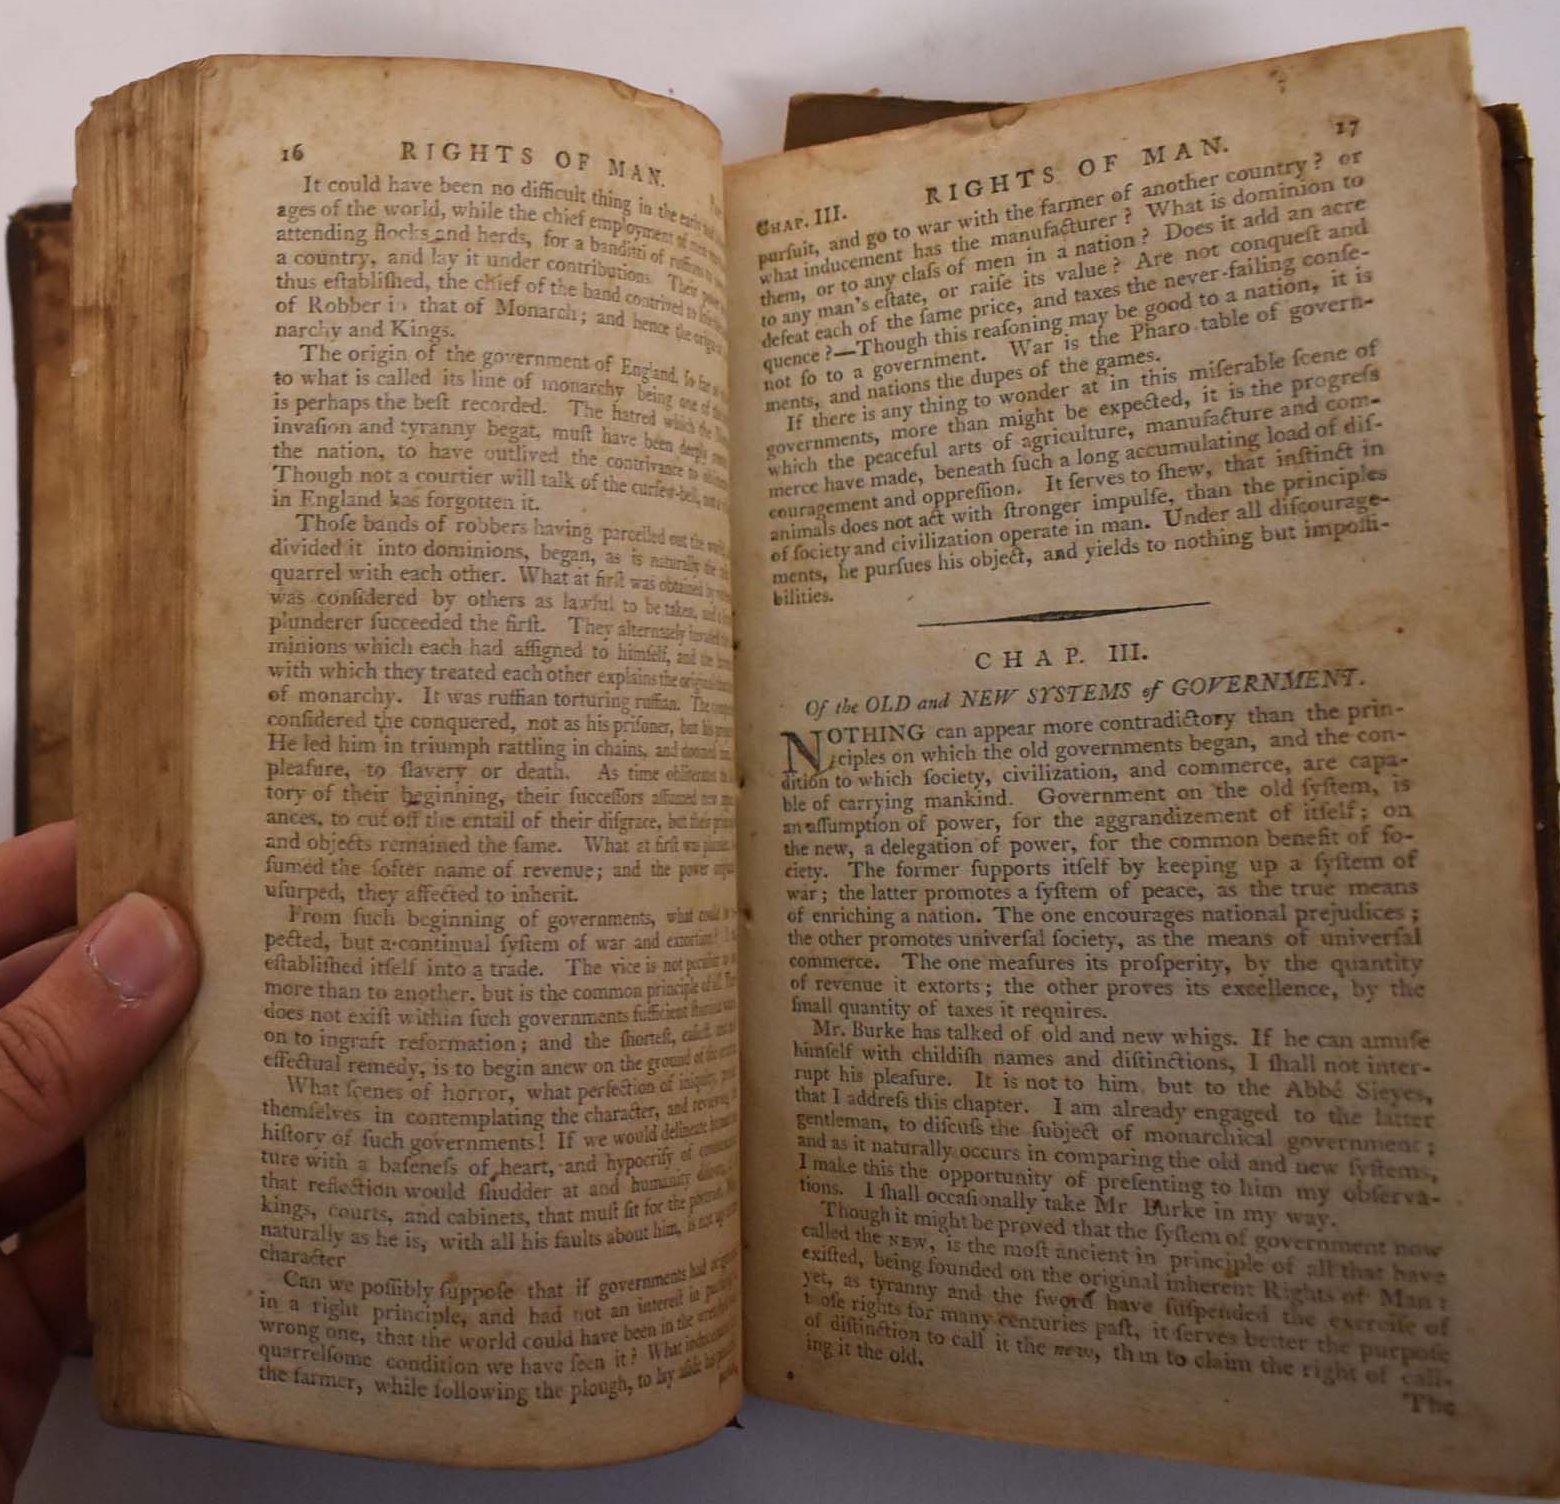 16 RIGHTS OF MAN.
It could have been no difficult thing in the early and
ages of the world, while the chief employment of men was
attending flocks and herds, for a banditti of ruffians to
a country, and lay it under contributions. Their power
thus eſtabliſhed, the chief of the band contrived to loſe the
of Robber in that of Monarch; and hence the origin of
narchy and Kings.
The origin of the government of England, ſo far as
to what is called its line of monarchy being one of the
is perhaps the beſt recorded. The hatred which the
invaſion and tyranny begat, muſt have been deeply
the nation, to have outlived the contrivance to
Though not a courtier will talk of the curfew-bell, not a
in England has forgotten it.
Thoſe bands of robbers having parcelled out the world,
divided it into dominions, began, as is naturally the
quarrel with each other. What at firſt was obtained by
was conſidered by others as lawful to be taken, and a
plunderer ſucceeded the firſt. They alternately invaded the
minions which each had aſſigned to himſelf, and the
with which they treated each other explains the original
of monarchy. It was ruffian torturing ruffian. The
conſidered the conquered, not as his priſoner, but his
He led him in triumph rattling in chains, and doomed
pleaſure, to ſlavery or death. As time obliterated the
tory of their beginning, their ſucceſſors aſſumed new
ances, to cut off the entail of their diſgrace, but their
and objects remained the ſame. What at firſt was
ſumed the ſofter name of revenue; and the power
uſurped, they affected to inherit.
From ſuch beginning of governments, what could
pected, but a continual ſyſtem of war and extortion?
eſtabliſhed itſelf into a trade. The vice is not peculiar to
more than to another, but is the common principle of all.
does not exiſt within ſuch governments ſufficient
on to ingraft reformation; and the ſhorteſt, eaſieſt,
effectual remedy, is to begin anew on the ground of the
What ſcenes of horror, what perfection of iniquity,
themſelves in contemplating the character, and reviewing
hiſtory of ſuch governments! If we would delineate
ture with a baſeneſs of heart, and hypocriſy of
that reflection would ſhudder at and humanity
kings, courts, and cabinets, that muſt ſit for the portrait.
naturally as he is, with all his faults about him, is not
character
Can we poſſibly ſuppoſe that if governments had
in a right principle, and had not an intereſt in
wrong one, that the world could have been in the
quarrelſome condition we have ſeen it? What inducement
the farmer, while following the plough, to lay aſide his
CHAP. III. RIGHTS OF MAN. 17
purſuit, and go to war with the farmer of another country? or
what inducement has the manufacturer? What is dominion to
them, or to any claſs of men in a nation? Does it add an acre
to any man's eſtate, or raiſe its value? Are not conqueſt and
defeat each of the ſame price, and taxes the never-failing conſe-
quence?—Though this reaſoning may be good to a nation, it is
not ſo to a government. War is the Pharo table of govern-
ments, and nations the dupes of the games.
If there is any thing to wonder at in this miſerable ſcene of
governments, more than might be expected, it is the progreſs
which the peaceful arts of agriculture, manufacture and com-
merce have made, beneath ſuch a long accumulating load of diſ-
couragement and oppreſſion. It ſerves to ſhew, that inſtinct in
animals does not act with ſtronger impulſe, than the principles
of ſociety and civilization operate in man. Under all diſcourage-
ments, he purſues his object, and yields to nothing but impoſſi-
bilities.
CHAP. III.
Of the OLD and NEW SYSTEMS of GOVERNMENT.
NOTHING can appear more contradictory than the prin-
ciples on which the old governments began, and the con-
dition to which ſociety, civilization, and commerce, are capa-
ble of carrying mankind. Government on the old ſyſtem, is
an aſſumption of power, for the aggrandizement of itſelf; on
the new, a delegation of power, for the common benefit of ſo-
ciety. The former ſupports itſelf by keeping up a ſyſtem of
war; the latter promotes a ſyſtem of peace, as the true means
of enriching a nation. The one encourages national prejudices;
the other promotes univerſal ſociety, as the means of univerſal
commerce. The one meaſures its proſperity, by the quantity
of revenue it extorts; the other proves its excellence, by the
ſmall quantity of taxes it requires.
Mr. Burke has talked of old and new whigs. If he can amuſe
himſelf with childiſh names and diſtinctions, I ſhall not inter-
rupt his pleaſure. It is not to him, but to the Abbé Sieyes,
that I addreſs this chapter. I am already engaged to the latter
gentleman, to diſcuſs the ſubject of monarchical government;
and as it naturally occurs in comparing the old and new ſyſtems,
I make this the opportunity of preſenting to him my obſerva-
tions. I ſhall occaſionally take Mr Burke in my way.
Though it might be proved that the ſyſtem of government now
called the NEW, is the moſt ancient in principle of all that have
exiſted, being founded on the original inherent Rights of Man:
yet, as tyranny and the ſword have ſuſpended the exerciſe of
thoſe rights for many centuries paſt, it ſerves better the purpoſe
of diſtinction to call it the new, than to claim the right of call-
ing it the old.
The